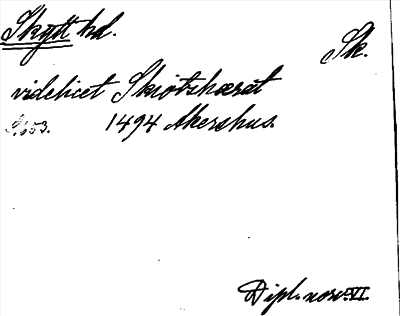 Skytt hd.
Sk.
videlicet Skiøtshærat
S. 653. 1494 Akershus.
Dipl. norv. VI.